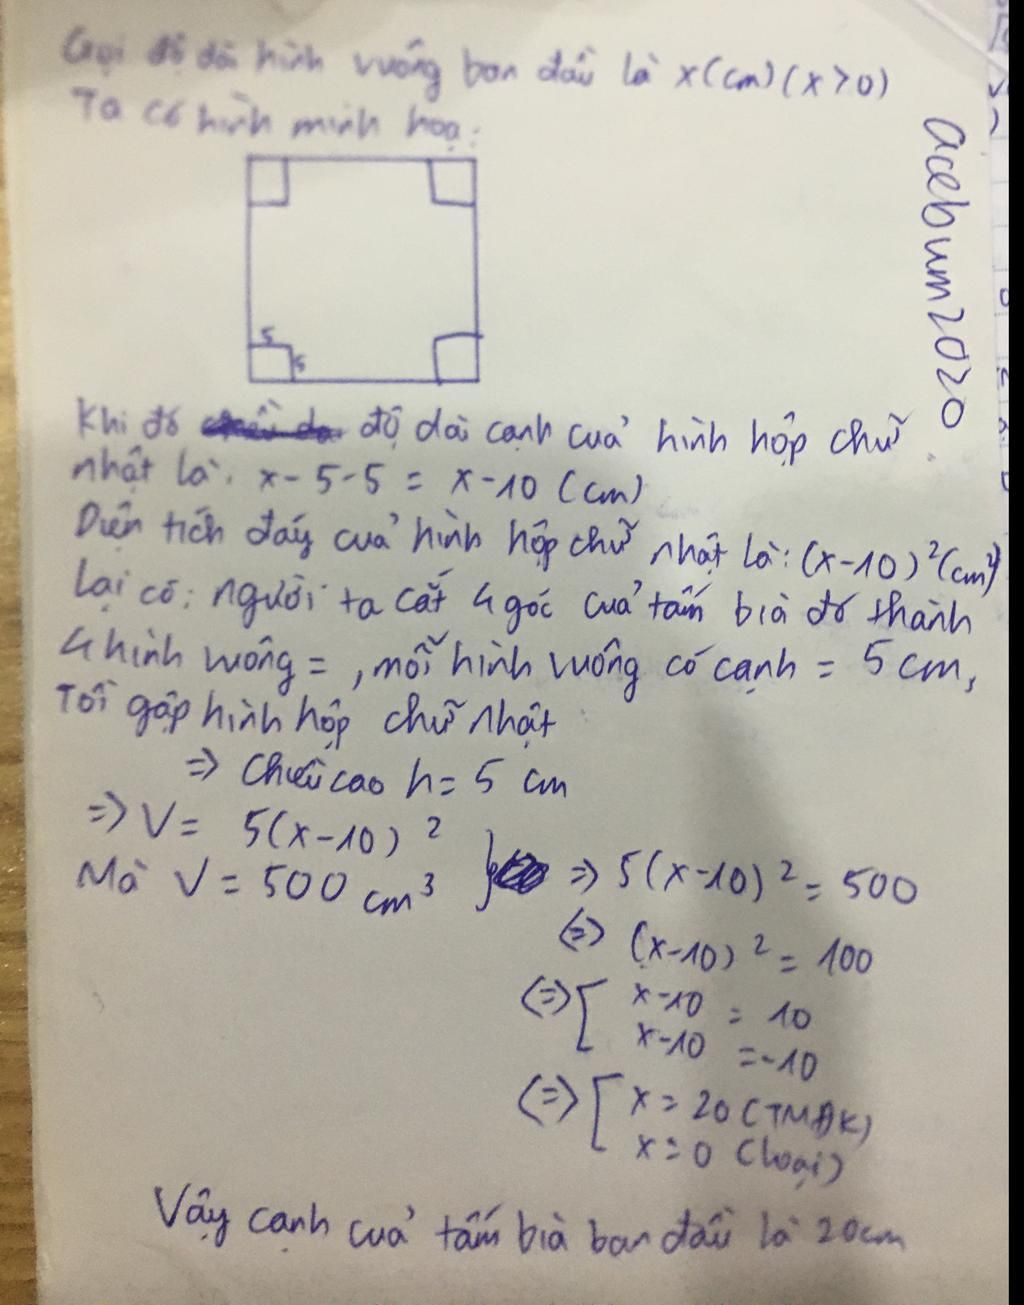 Gọi độ dài hình vuông ban đầu là x (cm) (x > 0)
Ta có hình minh hoạ:
acebum2020
5
5
Khi đó độ dài cạnh của hình hộp chữ
nhật là: x - 5 - 5 = x - 10 (cm)
Diện tích đáy của hình hộp chữ nhật là: (x-10)² (cm²)
Lại có: người ta cắt 4 góc của tấm bìa đó thành
4 hình vuông =, mỗi hình vuông có cạnh = 5 cm,
rồi gấp hình hộp chữ nhật
=> Chiều cao h = 5 cm
=> V = 5(x-10)²
Mà V = 500 cm³ } => 5(x-10)² = 500
<=> (x-10)² = 100
<=> [ x-10 = 10
x-10 = -10
<=> [ x = 20 (TMĐK)
x = 0 (loại)
Vậy cạnh của tấm bìa ban đầu là 20cm